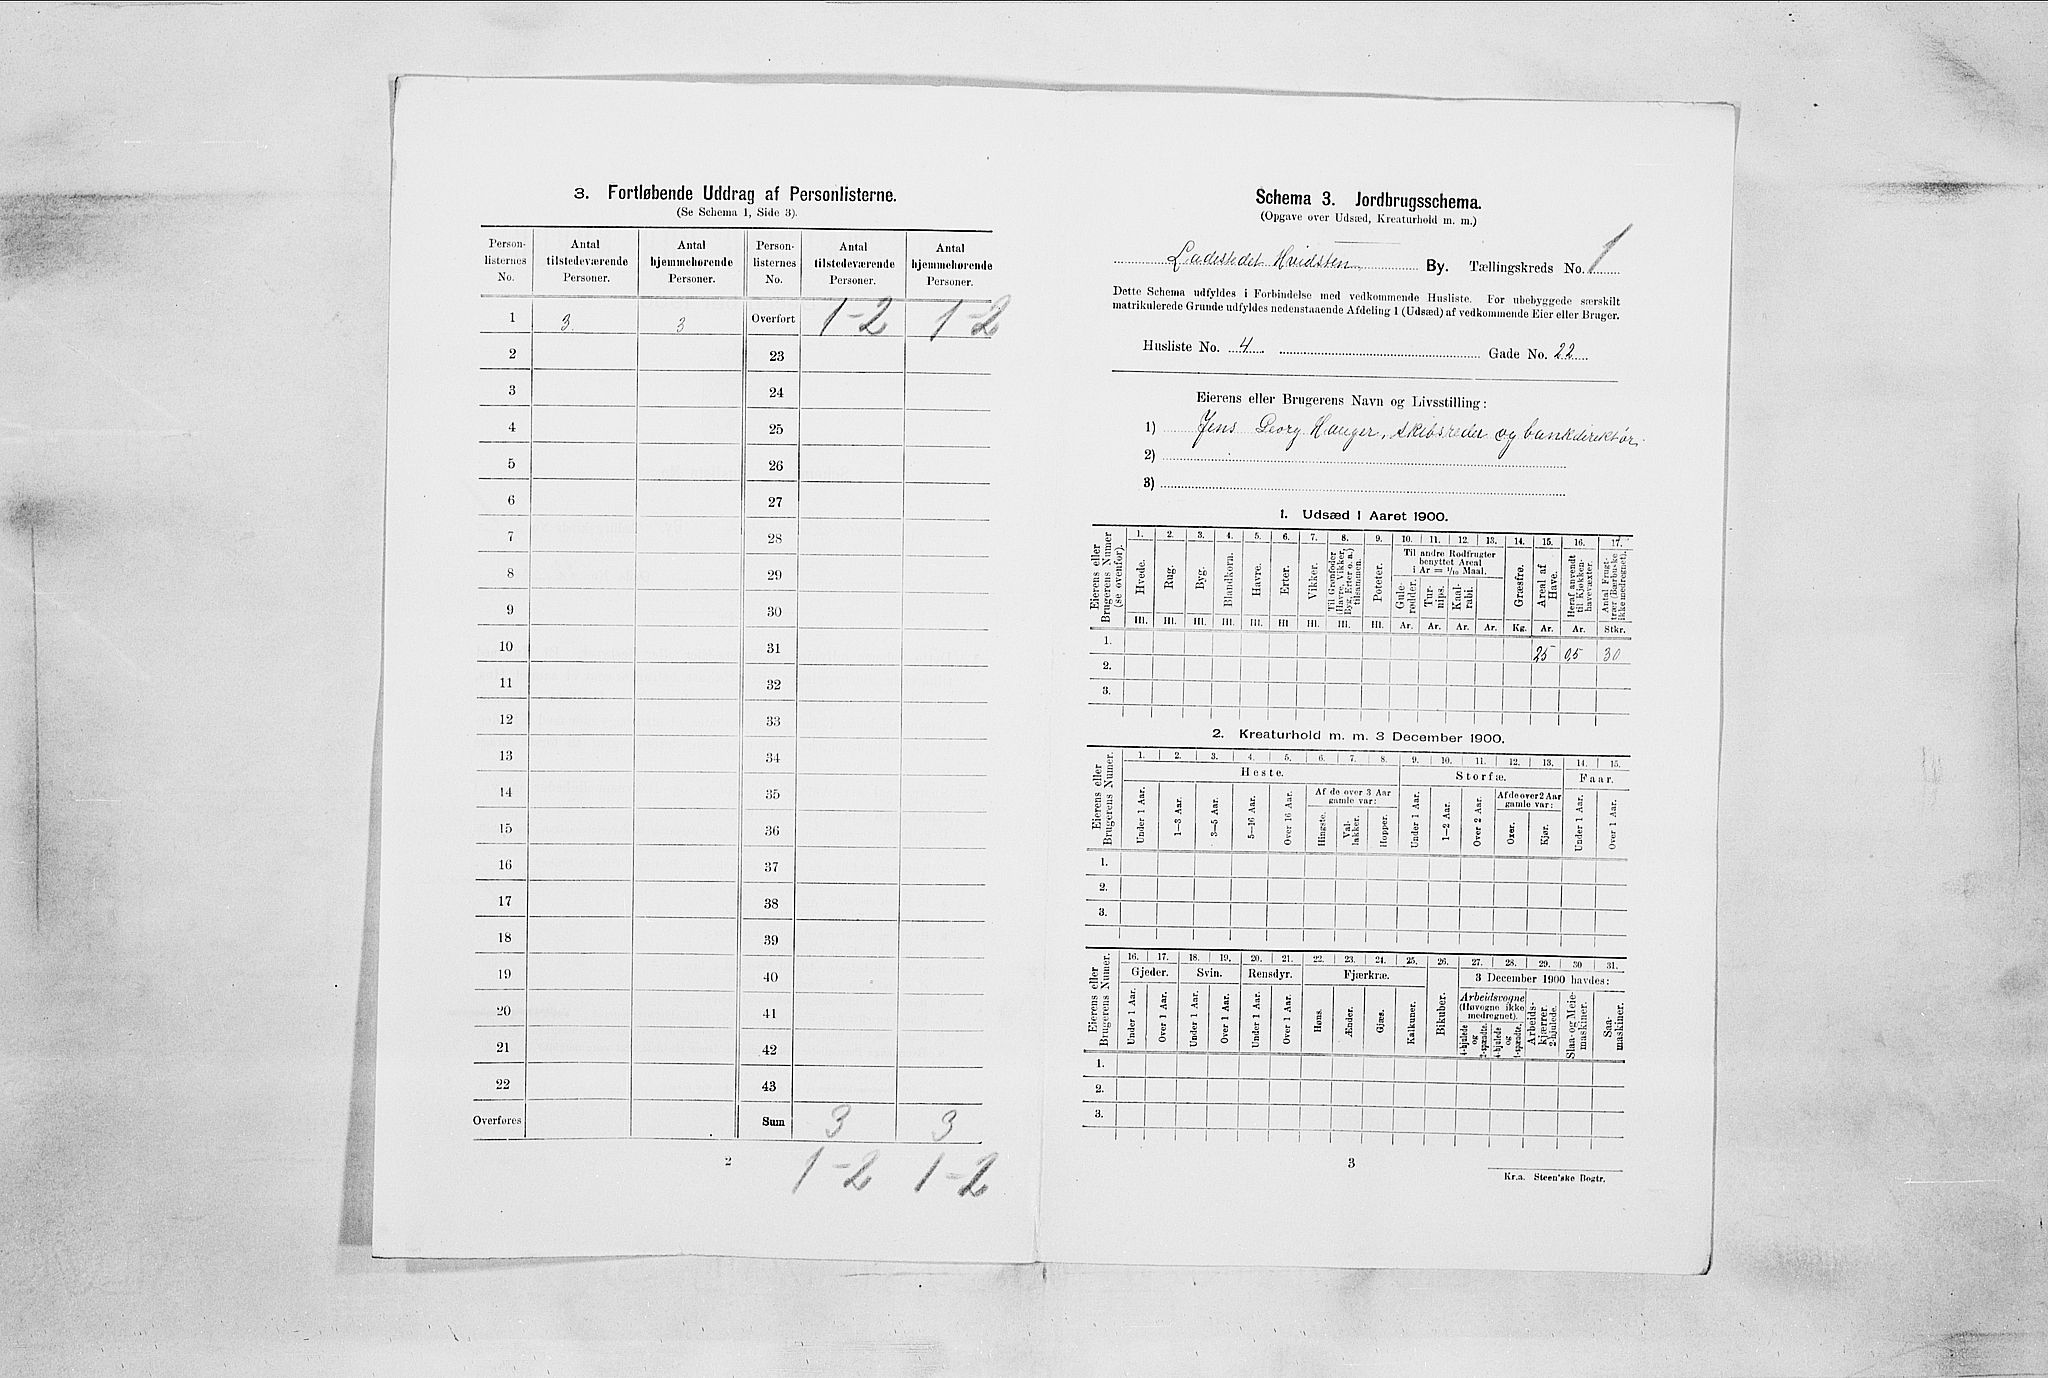 3. Fortløbende Uddrag af Personlisterne.
(Se Schema 1, Side 3).
Person-listernes No. Antal tilstedeværende Personer. Antal hjemmehørende Personer. Person-listernes No. Antal tilstedeværende Personer. Antal hjemmehørende Personer.
1 3 3 Overført 1-2 1-2
2 23
3 24
4 25
5 26
6 27
7 28
8 29
9 30
10 31
11 32
12 33
13 34
14 35
15 36
16 37
17 38
18 39
19 40
20 41
21 42
22 43
Overføres Sum 3 3
1-2 1-2
2
Schema 3. Jordbrugsschema.
(Opgave over Udsæd, Kreaturhold m. m.)
Ladestedet Hvidsten By. Tællingskreds No. 1
Dette Schema udfyldes i Forbindelse med vedkommende Husliste. For ubebyggede særskilt
matrikulerede Grunde udfyldes nedenstaaende Afdeling 1 (Udsæd) af vedkommende Eier eller Bruger.
Husliste No. 4 Gade No. 22
Eierens eller Brugerens Navn og Livsstilling:
1) Jens Georg Hauger, skibsreder og bankdirektør.
2)
3)
1. Udsæd i Aaret 1900.
Eierens eller Brugerens Numer (se ovenfor).
1. 2. 3. 4. 5. 6. 7. 8. 9. 10. 11. 12. 13. 14. 15. 16. 17.
Hvede. Rug. Byg. Blandkorn. Havre. Erter. Vikker. Til Grønfoder (Havre, Vikker, Byg, Erter o. a.) tilsammen. Poteter.
Til andre Rodfrugter benyttet Areal i Ar = 1/10 Maal.
Gule-rødder. Tur-nips. Kaal-rabi. Græsfrø. Areal af Have. Heraf anvendt til Kjøkken-havevæxter. Antal Frugt-trær (Bærbuske ikke medregnet).
Hl. Hl. Hl. Hl. Hl. Hl Hl. Hl. Hl. Ar. Ar. Ar. Ar. Kg. Ar. Ar. Stkr.
1. 25 0,5 30
2.
3.
2. Kreaturhold m. m. 3 December 1900.
Eierens eller Brugerens Numer.
1. 2. 3. 4. 5. 6. 7. 8. 9. 10. 11. 12. 13. 14. 15.
Heste. Storfæ. Faar.
Af de over 3 Aar gamle var: Af de over 2 Aar gamle var:
Under 1 Aar. 1—3 Aar. 3—5 Aar. 5—16 Aar. Over 16 Aar. Hingste. Val-lakker. Hopper. Under 1 Aar. 1—2 Aar. Over 2 Aar. Oxer. Kjør. Under 1 Aar. Over 1 Aar.
1.
2.
3.
Eierens eller Brugerens Numer.
16. 17. 18. 19. 20. 21. 22. 23. 24. 25. 26. 27. 28. 29. 30 31.
Gjeder. Svin. Rensdyr. Fjærkræ. 3 December 1900 havdes:
Under 1 Aar. Over 1 Aar. Under 1 Aar. Over 1 Aar. Under 1 Aar. Over 1 Aar. Høns. Ænder. Gjæs. Kalkuner. Bikuber.
Arbeidsvogne (Høvogne ikke medregnet).
4-hjulede og 2-spændte. 4-hjulede og 1-spændte. Arbeids-kjærrer 2-hjulede. Slaa- og Meie-maskiner. Saa-maskiner.
1.
2.
3.
3
Kr.a. Steen'ske Bogtr.